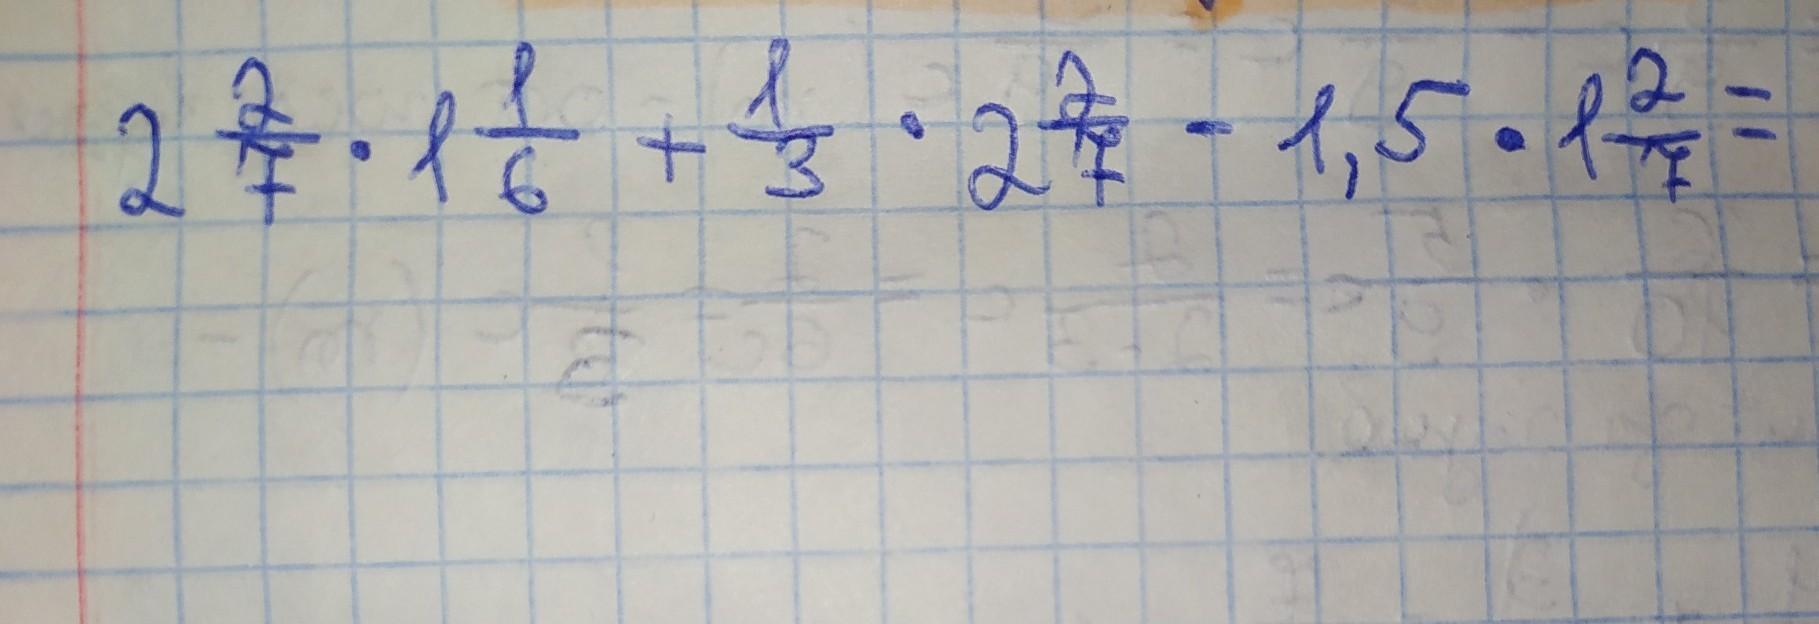 2 2/7 · 1 1/6 + 1/3 · 2 2/7 - 1,5 · 1 2/7 =